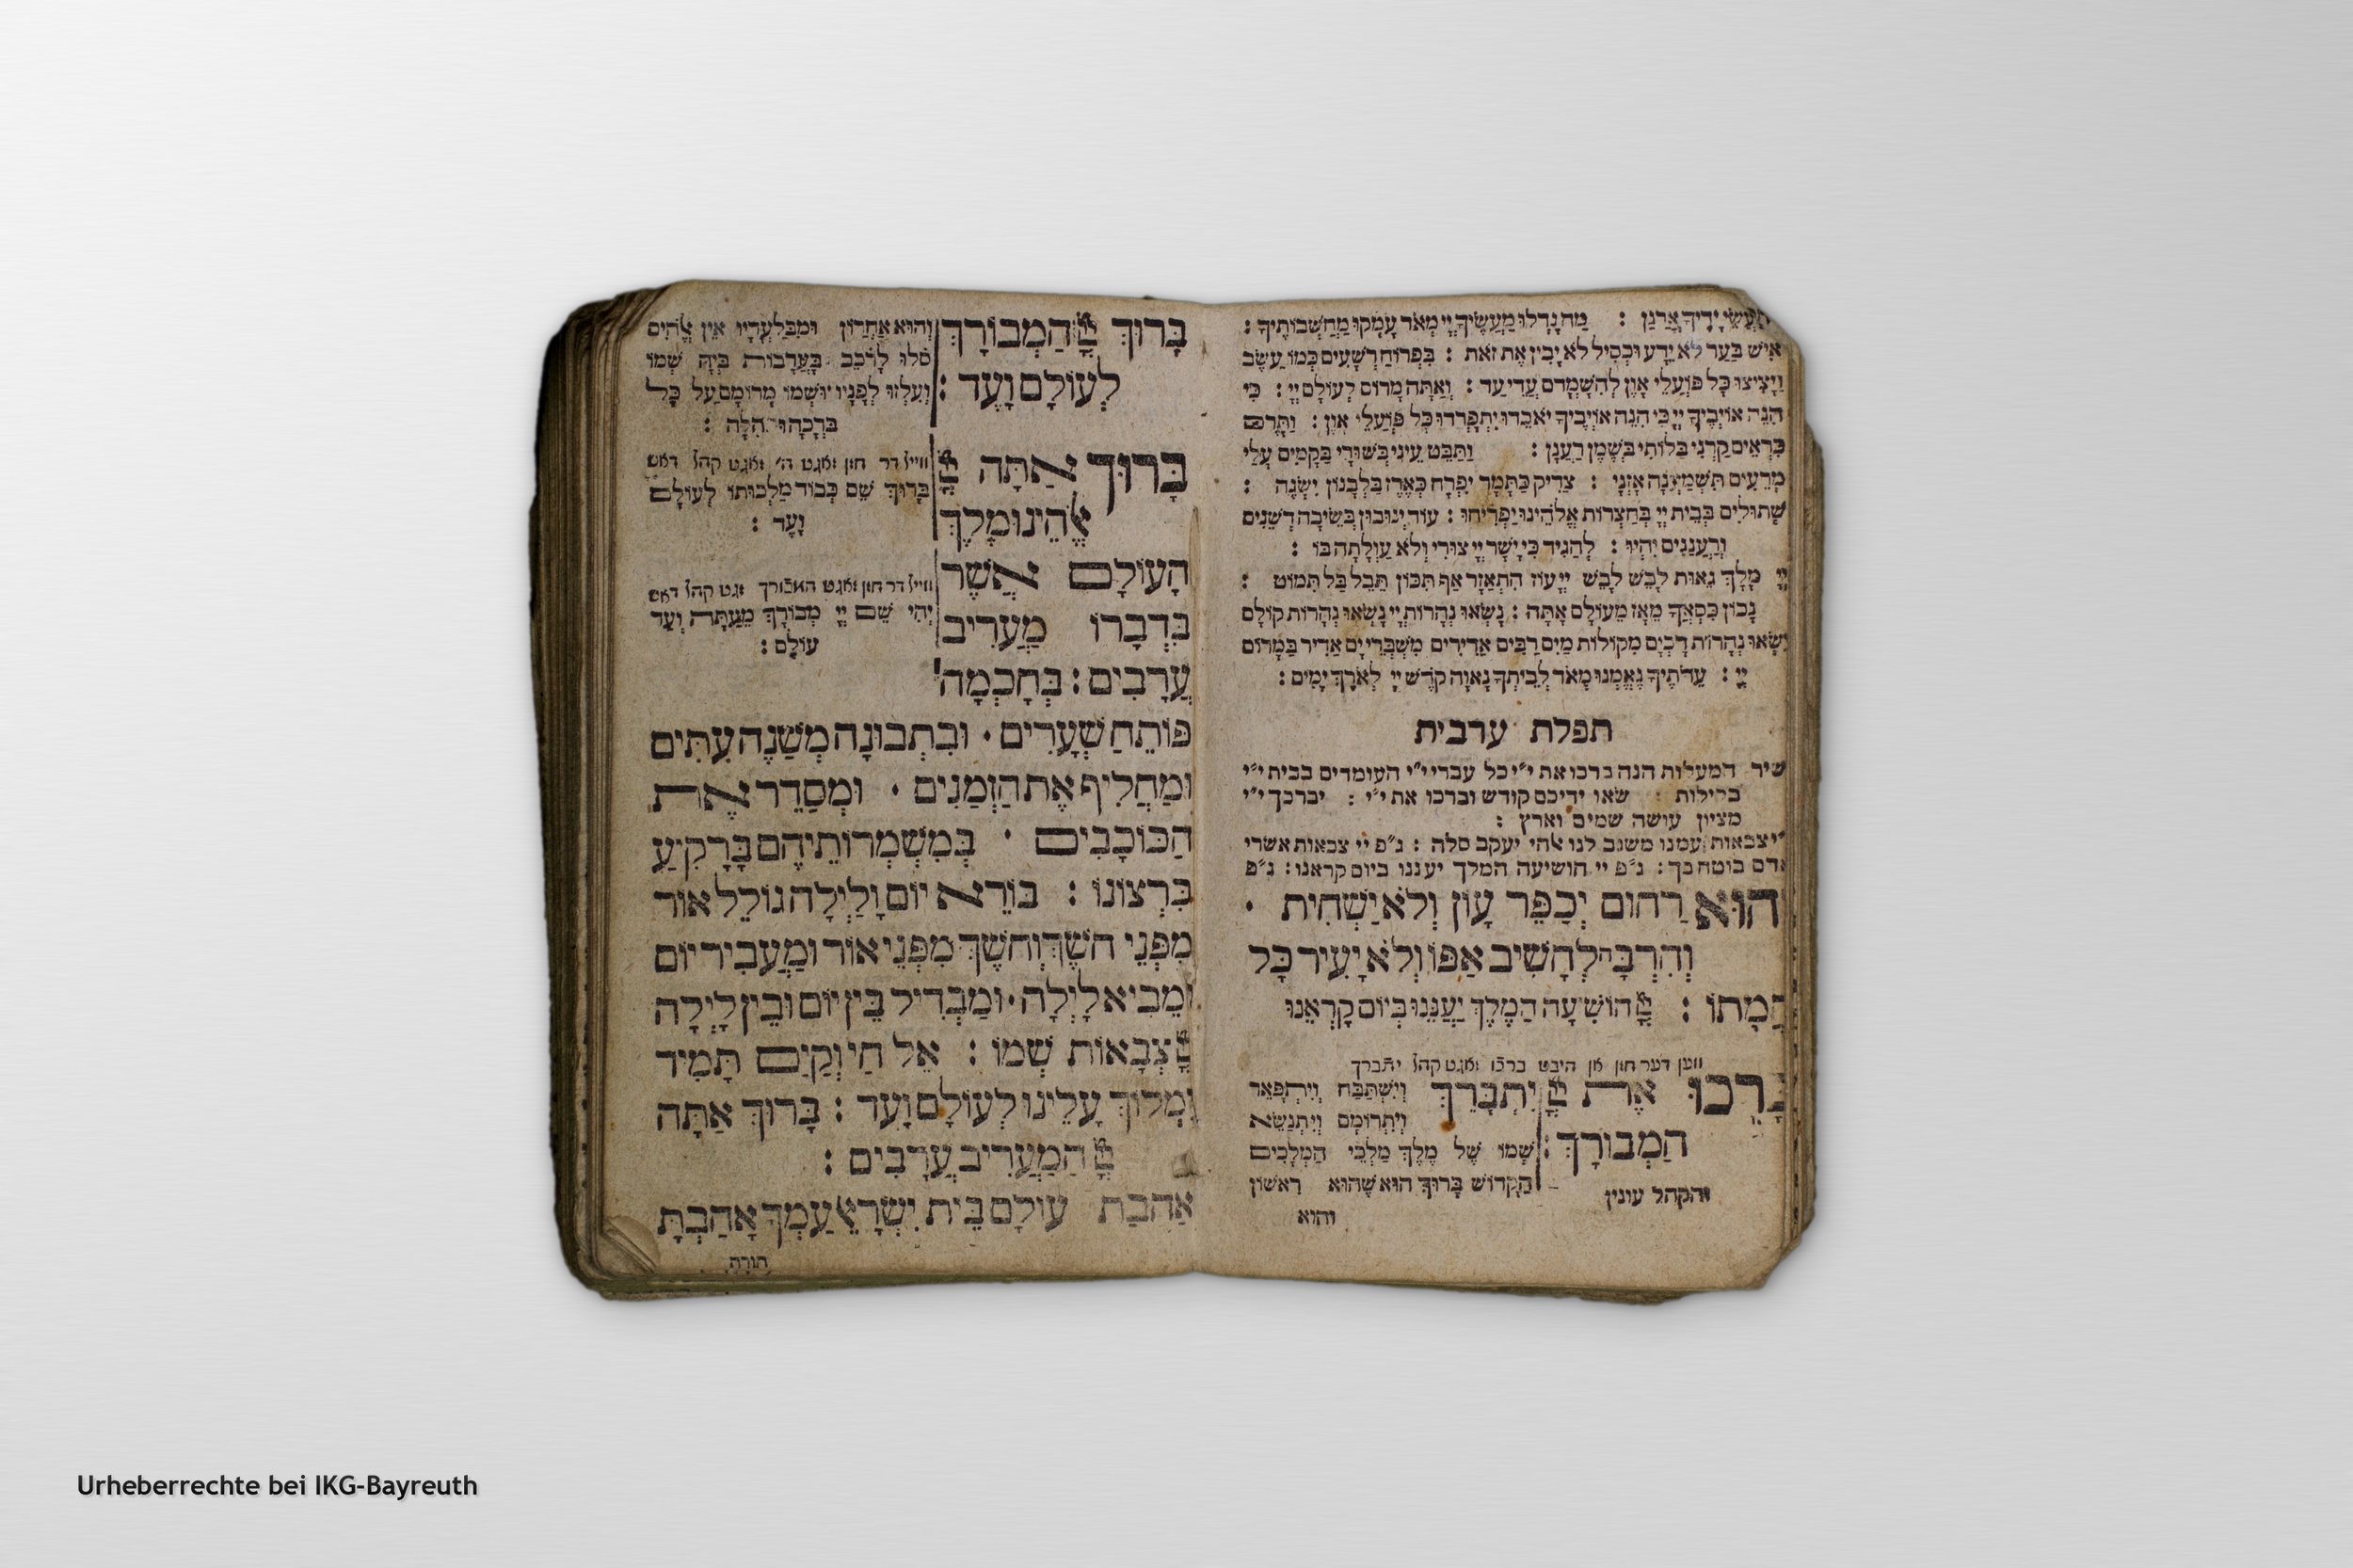 מַעֲשֵׂי יָדֶיךָ אֲרַנֵּן : מַה גָדְלוּ מַעֲשֶׂיךָ יְיָ מְאֹד עָמְקוּ מַחֲשְׁבוֹתֶיךָ :
אִישׁ בַּעַר לֹא יֵדָע וּכְסִיל לֹא יָבִין אֶת זֹאת : בִּפְרוֹחַ רְשָׁעִים כְּמוֹ עֵשֶׂב
וַיָצִיצוּ כָּל פּוֹעֲלֵי אָוֶן לְהִשָּׁמְדָם עֲדֵי עַד : וְאַתָּה מָרוֹם לְעוֹלָם יְיָ : כִּי
הִנֵּה אוֹיְבֶיךָ יְיָ כִּי הִנֵּה אוֹיְבֶיךָ יֹאבֵדוּ יִתְפָּרְדוּ כָּל פּוֹעֲלֵי אָוֶן : וַתָּרֶם
כִּרְאֵים קַרְנִי בַּלּוֹתִי בְּשֶׁמֶן רַעֲנָן : וַתַּבֵּט עֵינִי בְּשׁוּרָי בַּקָּמִים עָלַי
מְרֵעִים תִּשְׁמַעְנָה אָזְנָי : צַדִּיק כַּתָּמָר יִפְרָח כְּאֶרֶז בַּלְּבָנוֹן יִשְׂגֶּה :
שְׁתוּלִים בְּבֵית יְיָ בְּחַצְרוֹת אֱלֹהֵינוּ יַפְרִיחוּ : עוֹד יְנוּבוּן בְּשֵׂיבָה דְּשֵׁנִים
וְרַעֲנַנִּים יִהְיוּ : לְהַגִּיד כִּי יָשָׁר יְיָ צוּרִי וְלֹא עַוְלָתָה בּוֹ :
יְיָ מָלָךְ גֵּאוּת לָבֵשׁ לָבֵשׁ יְיָ עוֹז הִתְאַזָּר אַף תִּכּוֹן תֵּבֵל בַּל תִּמּוֹט :
נָכוֹן כִּסְאֲךָ מֵאָז מֵעוֹלָם אָתָּה : נָשְׂאוּ נְהָרוֹת יְיָ נָשְׂאוּ נְהָרוֹת קוֹלָם
יִשְׂאוּ נְהָרוֹת דָּכְיָם מִקּוֹלוֹת מַיִם רַבִּים אַדִּירִים מִשְׁבְּרֵי יָם אַדִּיר בַּמָּרוֹם
יְיָ : עֵדֹתֶיךָ נֶאֶמְנוּ מְאֹד לְבֵיתְךָ נָאֲוָה קֹדֶשׁ יְיָ לְאֹרֶךְ יָמִים :
תפלת ערבית
שיר המעלות הנה ברכו את י״י כל עבדי י״י העומדים בבית י״י
בלילות : שאו ידיכם קודש וברכו את י״י : יברכך י״י
מציון עושה שמים וארץ :
י״י צבאות עמנו משגב לנו אלהי יעקב סלה : ג״פ יי צבאות אשרי
אדם בוטח בך : ג״פ יי הושיעה המלך יעננו ביום קראנו : ג״פ
וְהוּא רַחוּם יְכַפֵּר עָוֹן וְלֹא יַשְׁחִית ·
וְהִרְבָּה לְהָשִׁיב אַפּוֹ וְלֹא יָעִיר כָּל
חֲמָתוֹ : יְיָ הוֹשִׁיעָה הַמֶּלֶךְ יַעֲנֵנוּ בְיוֹם קָרְאֵנוּ
ווען דער חזן אן היבט ברכו זאגט קהל יתברך
בָּרְכוּ אֶת יְיָ יִתְבָּרֵךְ וְיִשְׁתַּבַּח וְיִתְפָּאַר
וְיִתְרוֹמָם וְיִתְנַשֵּׂא
הַמְבוֹרָךְ : שְׁמוֹ שֶׁל מֶלֶךְ מַלְכֵי הַמְּלָכִים
הַקָּדוֹשׁ בָּרוּךְ הוּא שֶׁהוּא רִאשׁוֹן
והקהל עונין
והוא
בָּרוּךְ יְיָ הַמְבוֹרָךְ
לְעוֹלָם וָעֶד :
וְהוּא אַחֲרוֹן וּמִבַּלְעָדָיו אֵין אֱלֹהִים
סֹלּוּ לָרֹכֵב בָּעֲרָבוֹת בְּיָהּ שְׁמוֹ
וְעִלְזוּ לְפָנָיו וּשְׁמוֹ מְרוֹמָם עַל כָּל
בְּרָכָה וּתְהִלָּה :
בָּרוּךְ אַתָּה יְיָ
אֱלֹהֵינוּ מֶלֶךְ
ווייל דר חזן זאגט ה׳ זאגט קהל דאש
בָּרוּךְ שֵׁם כְּבוֹד מַלְכוּתוֹ לְעוֹלָם
וָעֶד :
הָעוֹלָם אֲשֶׁר
בִּדְבָרוֹ מַעֲרִיב
עֲרָבִים : בְּחָכְמָה
ווייל דר חזן זאגט המבורך זגט קהל דאש
יְהִי שֵׁם יְיָ מְבוֹרָךְ מֵעַתָּה וְעַד
עוֹלָם :
פּוֹתֵחַ שְׁעָרִים · וּבִתְבוּנָה מְשַׁנֶּה עִתִּים
וּמַחֲלִיף אֶת הַזְּמַנִּים · וּמְסַדֵּר אֶת
הַכּוֹכָבִים · בְּמִשְׁמְרוֹתֵיהֶם בָּרָקִיעַ
כִּרְצוֹנוֹ : בּוֹרֵא יוֹם וָלַיְלָה גּוֹלֵל אוֹר
מִפְּנֵי חשֶׁךְ וְחשֶׁךְ מִפְּנֵי אוֹר וּמַעֲבִיר יוֹם
וּמֵבִיא לָיְלָה · וּמַבְדִּיל בֵּין יוֹם וּבֵין לָיְלָה
יְיָ צְבָאוֹת שְׁמוֹ : אֵל חַי וְקַיָּם תָּמִיד
יִמְלוֹךְ עָלֵינוּ לְעוֹלָם וָעֶד : בָּרוּךְ אַתָּה
יְיָ הַמַּעֲרִיב עֲרָבִים :
אַהֲבַת עוֹלָם בֵּית יִשְׂרָאֵל עַמְּךָ אָהַבְתָּ
תורה
Urheberrechte bei IKG-Bayreuth